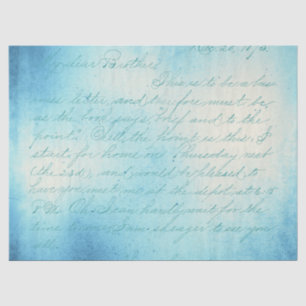 My dear Brother:
This is to be a bus
ness letter, and therefore must be,
as the book says, "brief and to the
point". Well, the point is this, I
start for home on Thursday next
(the 23d), and would be pleased to
have you meet me at the depot, at 6
P.M. Oh, I can hardly wait for the
time to come, I am so eager to see you